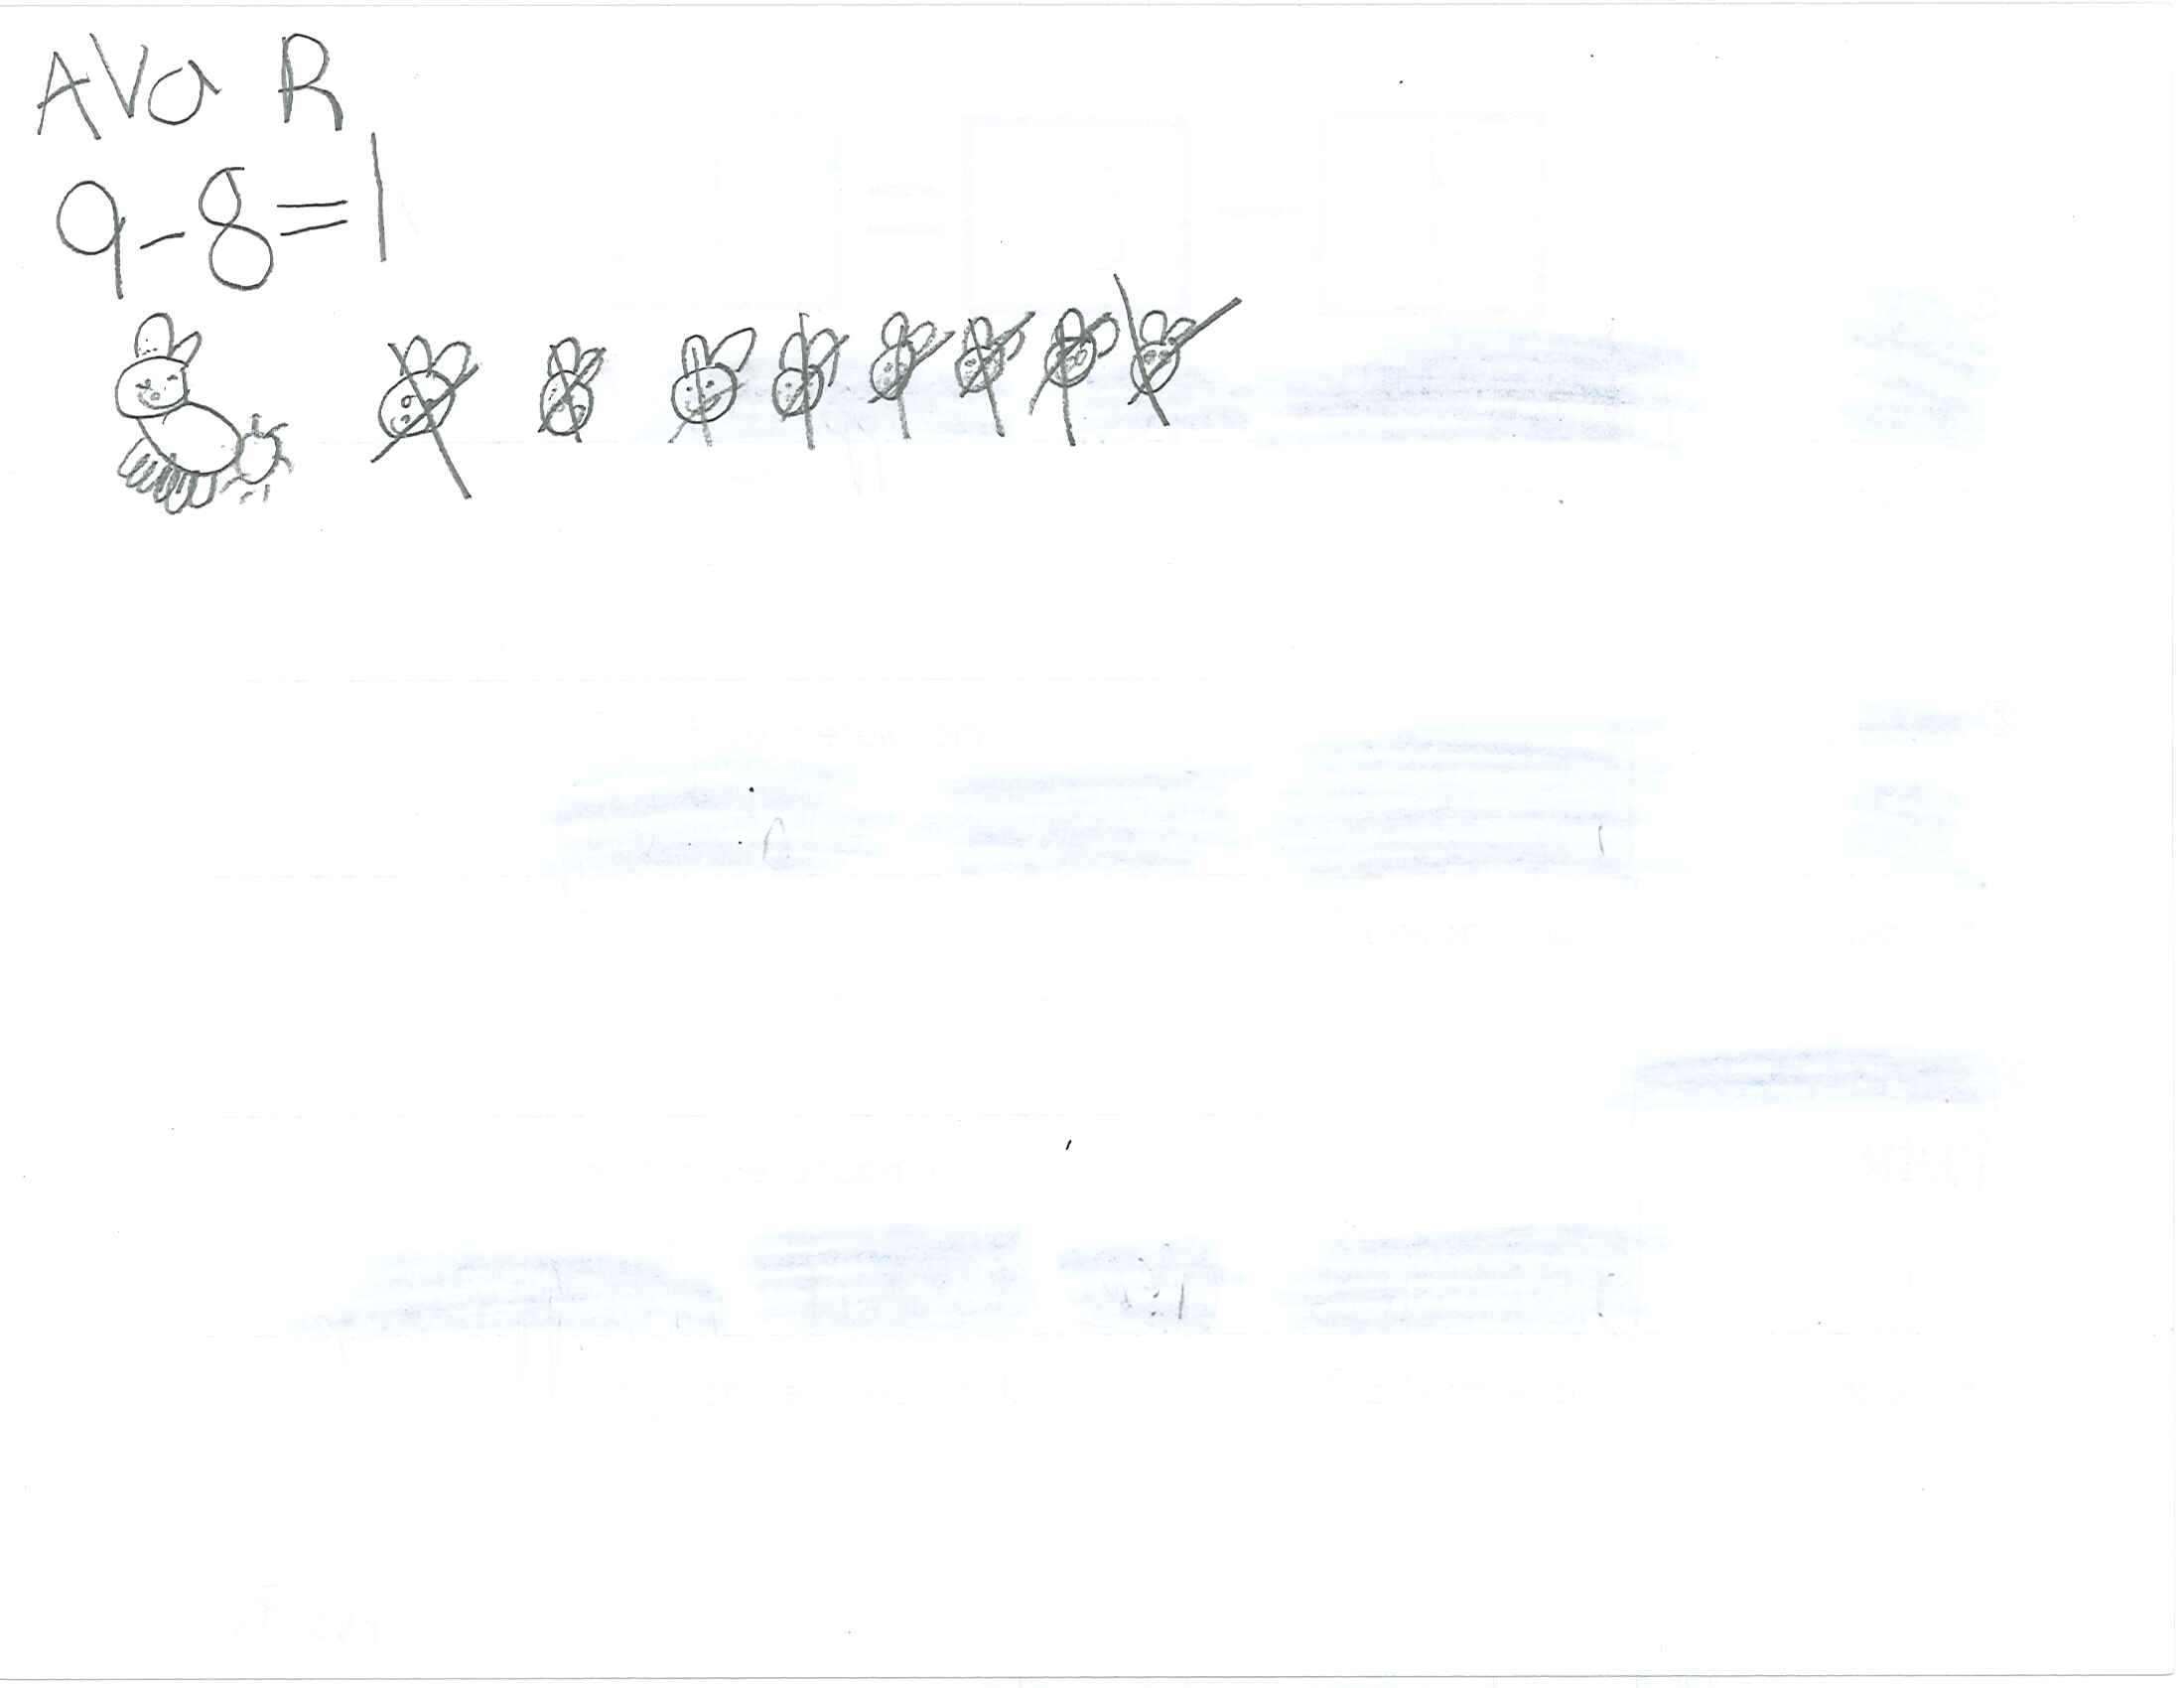 AVa R
9-8=1